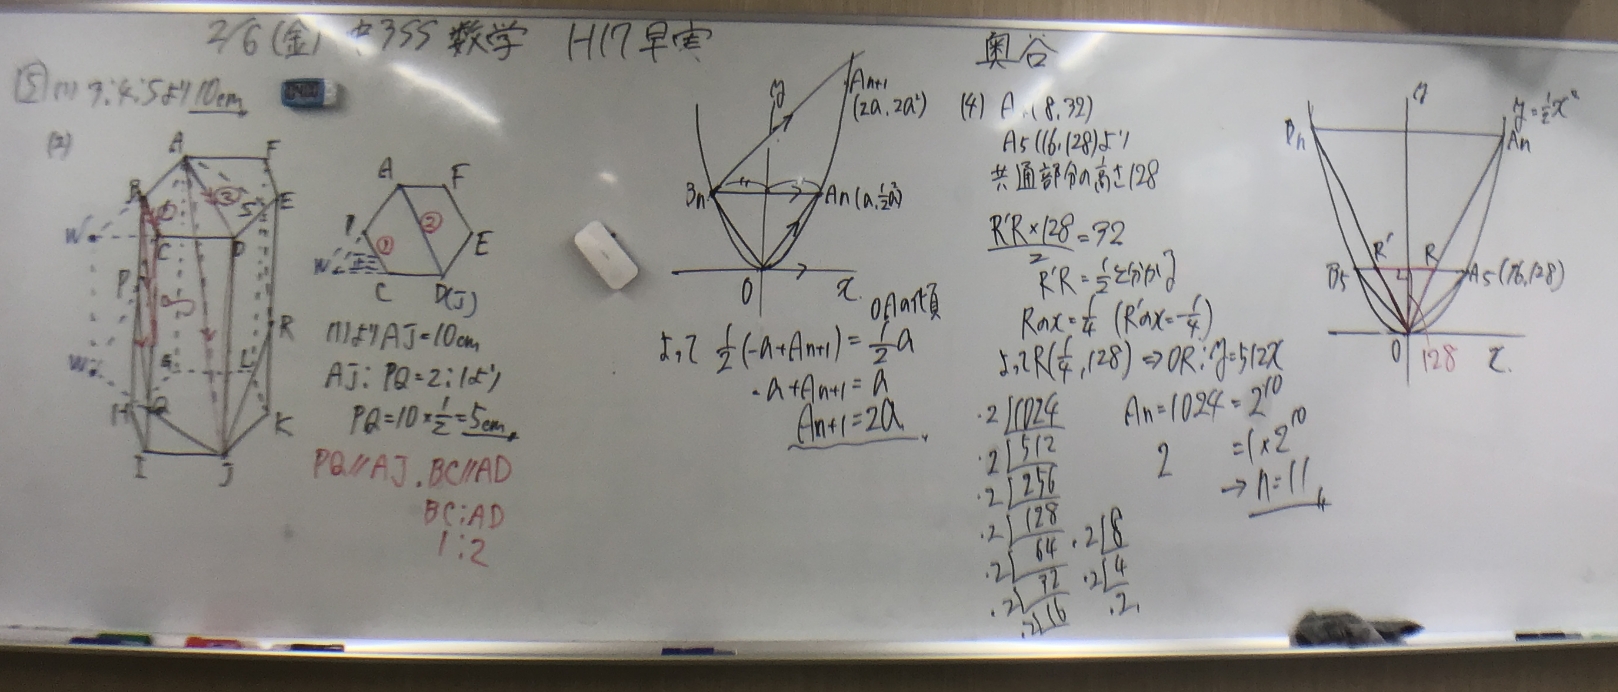 2/6(金) 中3SS 数学 H17 早実
奥谷
[5](1) 3:4:5より10cm
(2)
A
F
B
①
②
S
E
W
C
D
P
R
W
G
L
H
Q
K
I
J
A
F
B
②
①
E
W
C
D(J)
(1)よりAJ=10cm
AJ:PQ=2:1より
PQ=10×1/2=5cm
PQ//AJ.BC//AD
BC:AD
1:2
y
An+1
(2a,2a²)
Bn
An(a,1/2a²)
O
x
OAnの傾
よって 1/2(-a+An+1)=1/2a
-a+An+1=a
An+1=2a
(4) A (8,32)
A5(16,128)より
共通部分の高さ128
R'R×128/2=32
R'R=1/2とわかる
Rのx=1/4 (R'のx=-1/4)
よってR(1/4,128)⇒OR:y=512x
An=1024=2^10
2 =1×2^10
→n=11
2 1024
2 512
2 256
2 128
2 64
2 32
2 16
2 8
2 4
2
y
y=1/2x²
Bn
An
R'
R
B5
A5(16,128)
O
128
x